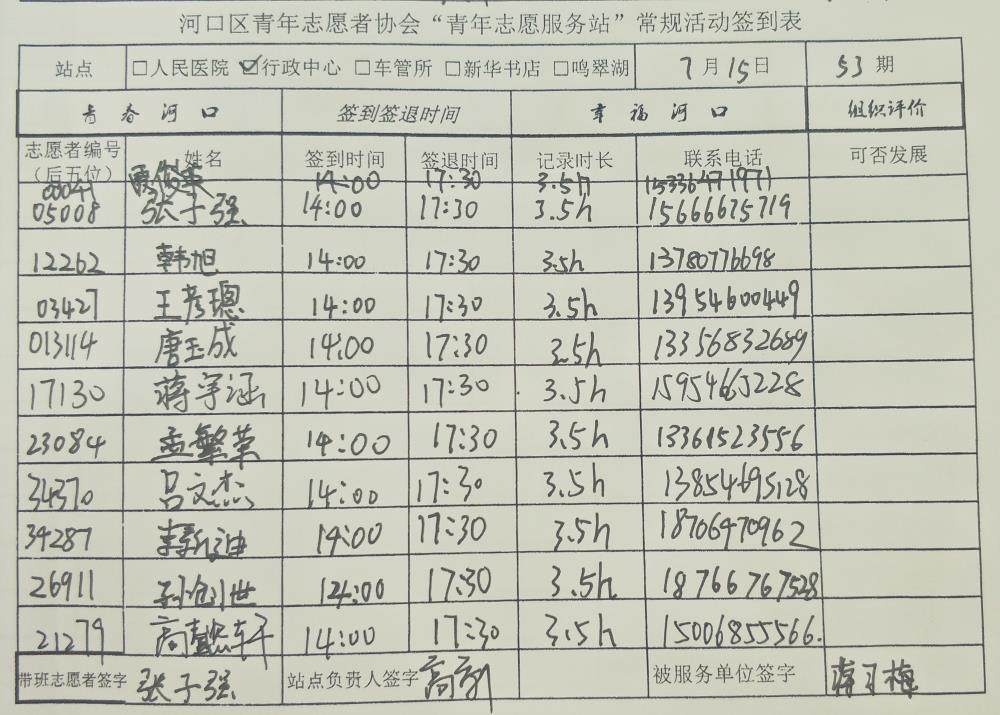 河口区青年志愿者协会“青年志愿服务站”常规活动签到表
站点 □人民医院 ☑行政中心 □车管所 □新华书店 □鸣翠湖 7月15日 53期
青春河口 签到签退时间 幸福河口 组织评价
志愿者编号（后五位） 姓名 签到时间 签退时间 记录时长 联系电话 可否发展
00041 14:00 17:30 3.5h 15336471971
05008 张子强 14:00 17:30 3.5h 15666675719
12262 韩旭 14:00 17:30 3.5h 13780776698
03427 王彦璁 14:00 17:30 3.5h 13954600449
013114 唐玉成 14:00 17:30 3.5h 13356832689
17130 蒋宇涵 14:00 17:30 3.5h 15954665228
23084 孟繁荣 14:00 17:30 3.5h 13361523556
34370 吕文杰 14:00 17:30 3.5h 13854695128
34287 14:00 17:30 3.5h 18706470962
26911 孙创世 14:00 17:30 3.5h 18766767528
21279 高懿轩 14:00 17:30 3.5h 15006855566.
带班志愿者签字 张子强 站点负责人签字 被服务单位签字